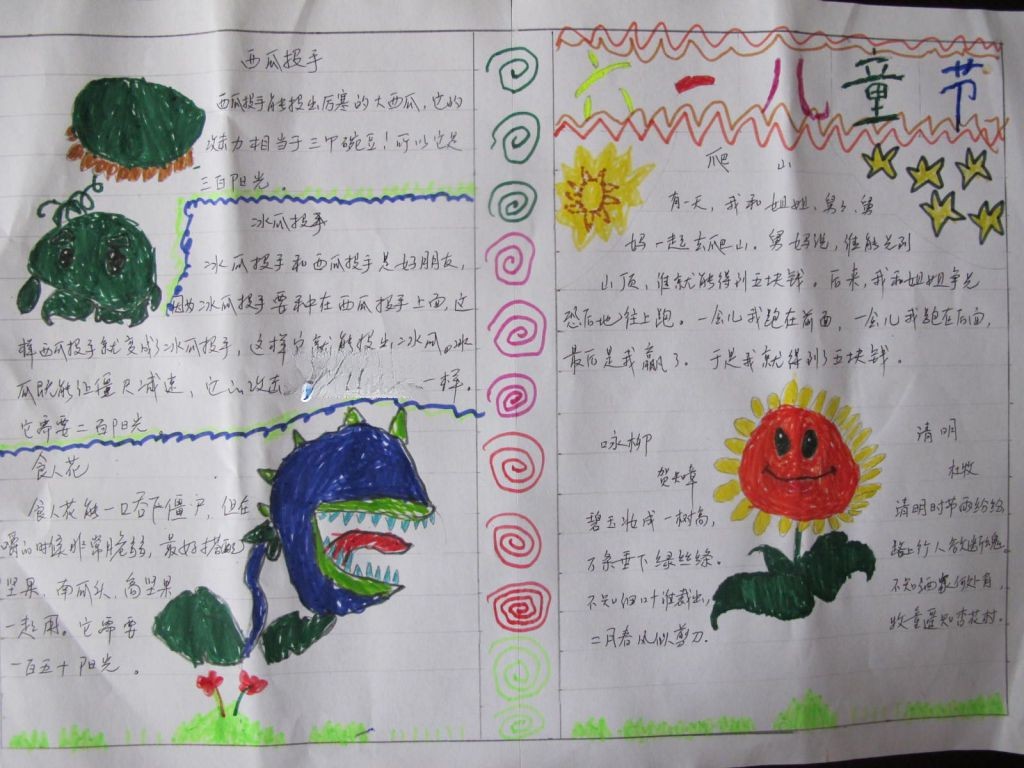 西瓜投手
西瓜投手能投出厉害的大西瓜,它的
攻击力相当于三个碗豆!可以它是
三百阳光。
冰瓜投手
冰瓜投手和西瓜投手是好朋友,
因为冰瓜投手要种在西瓜投手上面,这
样西瓜投手就变成了冰瓜投手,这样它就能投出冰瓜。冰
瓜既能让僵尸减速,它的攻击 一样。
它需要二百阳光
食人花
食人花能一口吞下僵尸,但在
嚼的时候非常脆弱,最好搭配
坚果、南瓜头、高坚果
一起用。它需要
一百五十阳光。
六一儿童节
爬 山
有一天,我和姐姐、舅舅、舅
妈一起去爬山。舅妈说,谁能先到
山顶,谁就能得到五块钱。后来,我和姐姐争先
恐后地往上跑。一会儿我跑在前面,一会儿我跑在后面,
最后是我赢了。于是我就得到了五块钱。
咏柳
贺知章
碧玉妆成一树高,
万条垂下绿丝绦。
不知细叶谁裁出,
二月春风似剪刀.
清明
杜牧
清明时节雨纷纷
路上行人欲断魂。
不知酒家何处有,
牧童遥知杏花村.